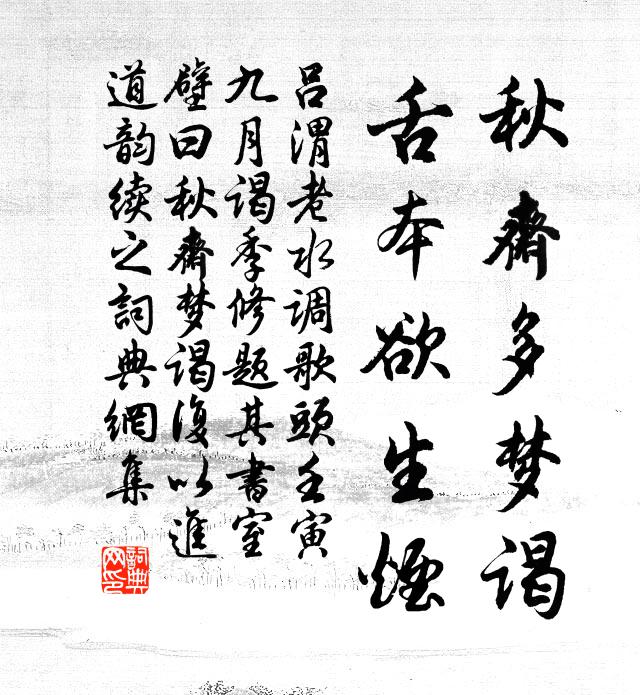 秋齋多梦谒
舌本欲生煙
吕渭老水调歌頭壬寅
九月谒季修题其書室
壁曰秋齋梦谒復以進
道韵续之詞典網集
詞典
网印